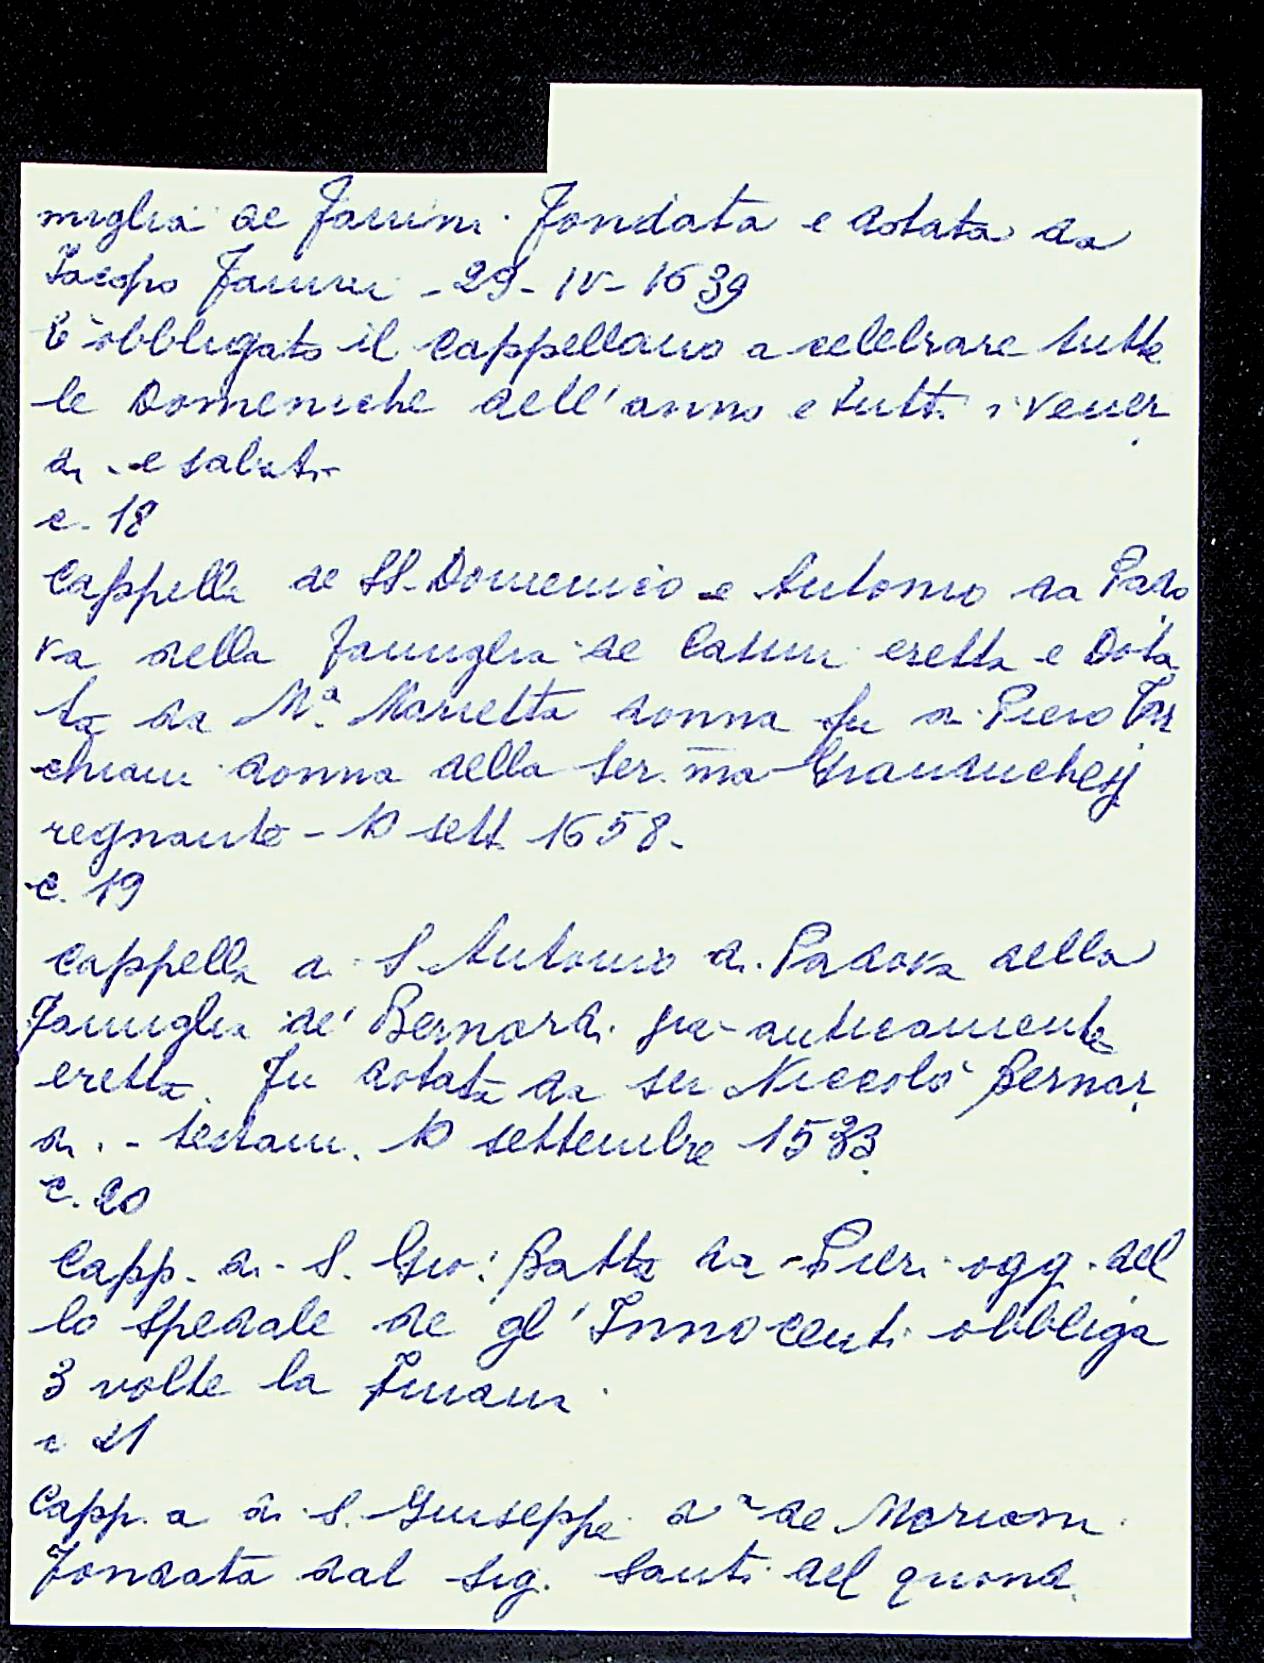 miglia de Fanini. Fondata e dotata da
Jacopo Fanini - 29 - IV - 1639
È obbligato il Cappellano a celebrare tutte
le Domeniche dell'anno e tutti i vener
di - e sabati -
c. 18
Cappella de SS. Domenico e Antonio da Pado
va della Famiglia de Casini eretta e Dota
ta da M.a Marietta donna fu di Piero Tar
chiani donna della Ser.ma Granduchess
regnante - 10 sett. 1658 -
c. 19
Cappella di S. Antonio di Padova della
Famiglia de' Bernardi già anticamente
eretta. Fu dotata da ser Niccolò Bernar
di. - testam. 10 settembre 1533
c. 20
Capp. di S. Gio: Batta da Pieri oggi del
lo Spedale de gl'Innocenti obbliga
3 volte la
c 21
Capp.a di S. Giuseppe d.a de Mariani
Fondata dal sig. Santi del quond.